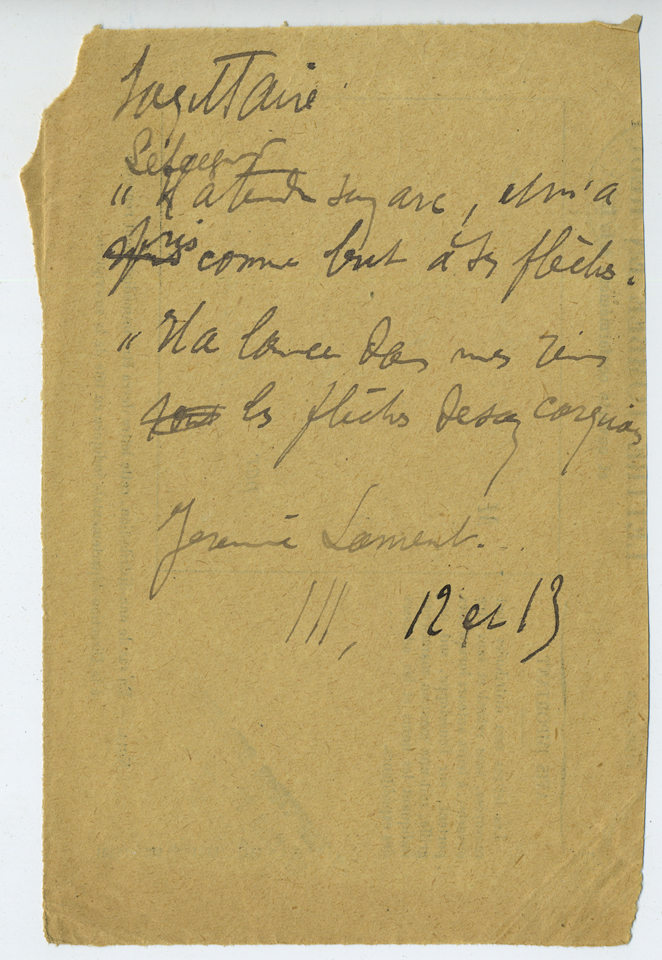 Sagittaire
Le Seigneur
" Il a tendu son arc, et m'a
pris comme but à ses flèches.
" Il a lancé dans mes reins
les flèches de son carquois
Jérémie Lament.
III, 12 et 13